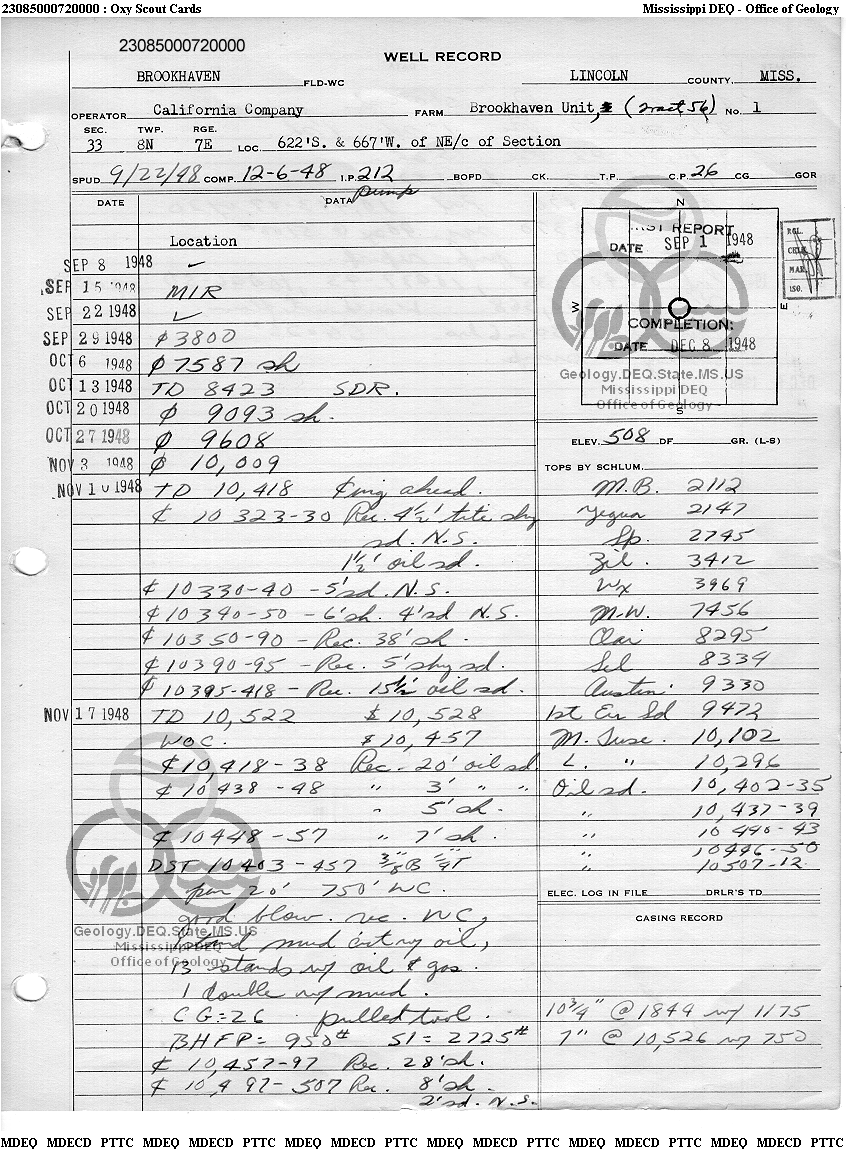 23085000720000 : Oxy Scout Cards Mississippi DEQ - Office of Geology
23085000720000
WELL RECORD
BROOKHAVEN FLD-WC LINCOLN COUNTY, MISS.
OPERATOR California Company FARM Brookhaven Unit, (Tract 56) No. 1
SEC. TWP. RGE.
33 8N 7E LOC. 622'S. & 667'W. of NE/c of Section
SPUD 9/22/48 COMP. 12-6-48 I.P. 212 BOPD CK. T.P. C.P. 26 CG GOR
pump
DATE DATA
Location
SEP 8 1948 ✓
SEP 15 1948 MIR
SEP 22 1948 ✓
SEP 29 1948 ₵ 3800
OCT 6 1948 ₵ 7587 sh
OCT 13 1948 TD 8423 SDR.
OCT 20 1948 ₵ 9093 sh.
OCT 27 1948 ₵ 9608
NOV 3 1948 ₵ 10,009
NOV 10 1948 TD 10,418 ₵ing ahead.
₵ 10323-30 Rec. 4½' tite shy
sd. N.S.
1½' oil sd.
₵ 10330-40 - 5' sd. N.S.
₵ 10340-50 - 6' sh. 4' sd N.S.
₵ 10350-90 - Rec. 38' sh.
₵ 10390-95 - Rec. 5' shy sd.
₵ 10395-418 - Rec. 15½' oil sd.
NOV 17 1948 TD 10,522 $ 10,528
WOC. $ 10,457
₵ 10418-38 Rec. 20' oil sd.
₵ 10438-48 " 3' " "
" 5' sh.
₵ 10448-57 " 7' sh.
DST 10403-457 3/8"B 1/4"T
750' WC.
good blow. rec. WC,
1 stand mud cut w/ oil,
13 stands w/ oil & gas.
1 double w/ mud.
CG=26 pulled tool.
BHFP= 950# SI= 2725#
₵ 10,457-97 Rec. 28' sh.
₵ 10,497-507 Rec. 8' sh.
2' sd. N.S.
N
FIRST REPORT
DATE SEP 1 1948
W E
COMPLETION:
DATE DEC 8 1948
S
RGL.
CHLK.
MAR.
ISO.
Geology.DEQ.State.MS.US
Mississippi DEQ
Office of Geology
ELEV. 508 DF GR. (L-S)
TOPS BY SCHLUM.
M.B. 2112
Yegua 2147
Sp. 2745
Zil. 3412
Wx 3969
M.W. 7456
Clai 8295
Sel 8334
Austin 9330
1st Eu Sd 9472
M. Tusc. 10,102
L. " 10,296
Oil sd. 10,402-35
" 10,437-39
" 10440-43
" 10446-50
" 10507-12
ELEC. LOG IN FILE DRLR'S TD
CASING RECORD
10¾" @ 1849 w/ 1175
7" @ 10,526 w/ 750
Geology.DEQ.State.MS.US
Mississippi DEQ
Office of Geology
MDEQ MDECD PTTC MDEQ MDECD PTTC MDEQ MDECD PTTC MDEQ MDECD PTTC MDEQ MDECD PTTC MDEQ MDECD PTTC